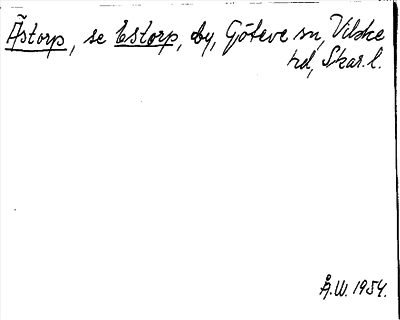 Ästorp, se Estorp, by, Göteve sn, Vilske
hd, Skar. l.
Å.W. 1954.